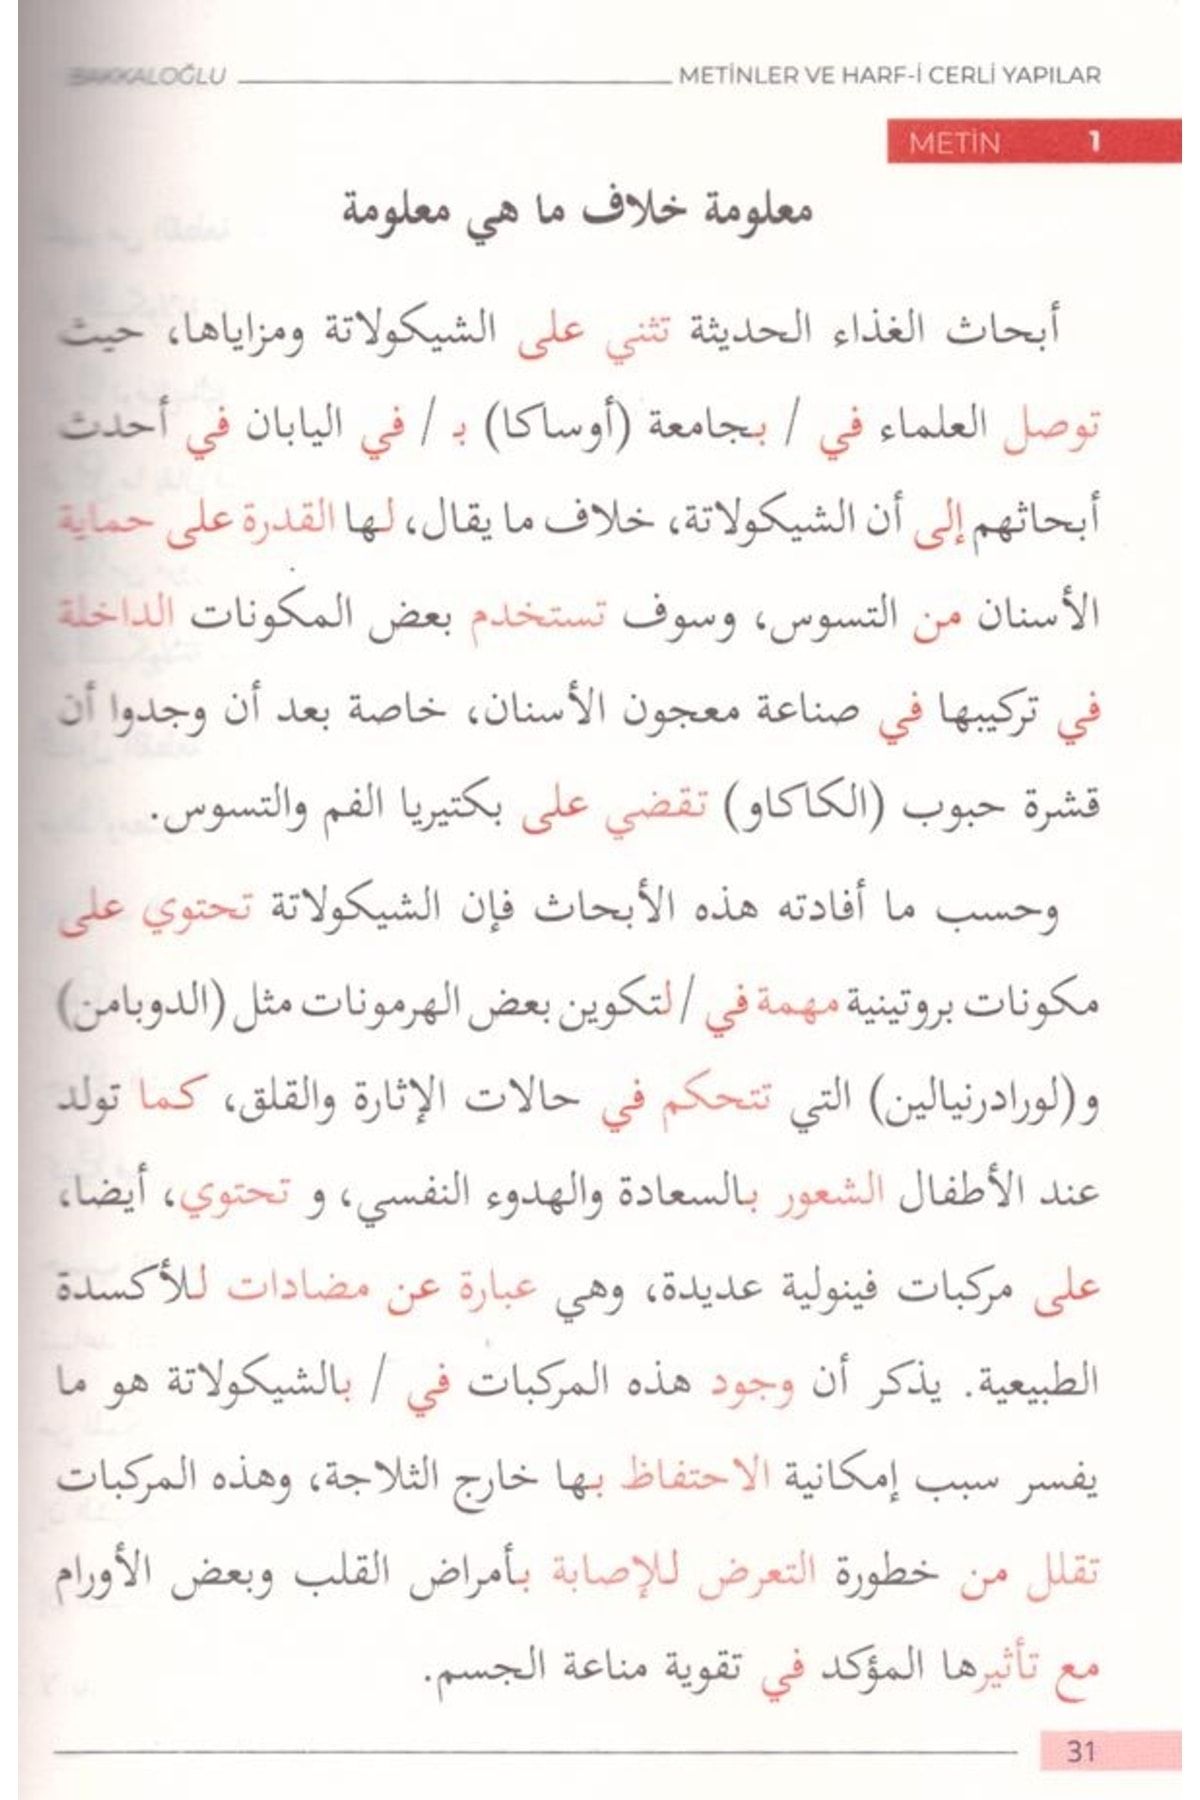 BAKKALOĞLU METİNLER VE HARF-İ CERLİ YAPILAR
METİN 1
معلومة خلاف ما هي معلومة
أبحاث الغذاء الحديثة تثني على الشيكولاتة ومزاياها، حيث
توصل العلماء في / بجامعة (أوساكا) بـ / في اليابان في أحدث
أبحاثهم إلى أن الشيكولاتة، خلاف ما يقال، لها القدرة على حماية
الأسنان من التسوس، وسوف تستخدم بعض المكونات الداخلة
في تركيبها في صناعة معجون الأسنان، خاصة بعد أن وجدوا أن
قشرة حبوب (الكاكاو) تقضي على بكتيريا الفم والتسوس.
وحسب ما أفادته هذه الأبحاث فإن الشيكولاتة تحتوي على
مكونات بروتينية مهمة في / لتكوين بعض الهرمونات مثل (الدوبامن)
و(لورادرنيالين) التي تتحكم في حالات الإثارة والقلق، كما تولد
عند الأطفال الشعور بالسعادة والهدوء النفسي، و تحتوي، أيضا،
على مركبات فينولية عديدة، وهي عبارة عن مضادات للأكسدة
الطبيعية. يذكر أن وجود هذه المركبات في / بالشيكولاتة هو ما
يفسر سبب إمكانية الاحتفاظ بها خارج الثلاجة، وهذه المركبات
تقلل من خطورة التعرض للإصابة بأمراض القلب وبعض الأورام
مع تأثيرها المؤكد في تقوية مناعة الجسم.
31